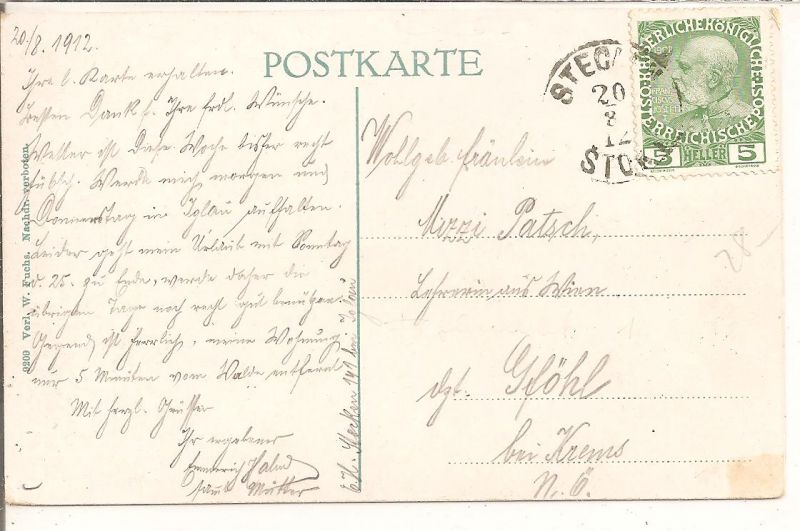 20/8. 1912.
Ihre l. Karte erhalten.
Besten Dank f. Ihre frdl. Wünsche.
Wetter ist diese Woche bisher recht
kühl. Werde mich morgen und
Donnerstag in Iglau aufhalten.
Leider geht mein Urlaub mit Sonntag
d. 25. zu Ende, werde daher die
übrigen Tage noch recht gut benützen.
Gegend ist herrlich, meine Wohnung
nur 5 Minuten vom Walde entfernt
Mit herzl. Grüssen
Ihr ergebener
Emmerich
samt Mutter
Stecken 141 bei Iglau
9209 Verl. W. Fuchs. Nachdr. verboten.
POSTKARTE
STEC
20
8
12
STOK
5 HELLER 5
Wohlgeb. Fräulein
Mizzi Patsch,
Lehrerin aus Wien
dzt. Gföhl
bei Krems
N. Ö.
28-